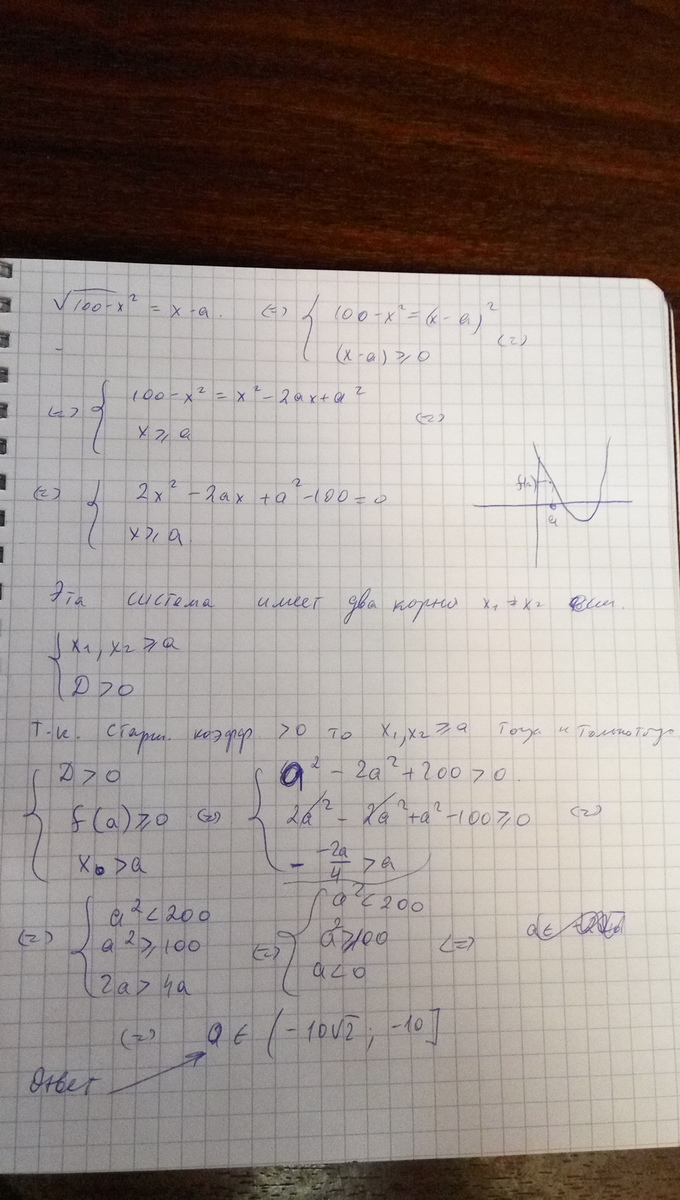 √100-x² = x-a. <=> { 100-x² = (x-a)²
(x-a) ≥ 0 <=>
<=> { 100-x² = x²-2ax+a²
x ≥ a <=>
<=> { 2x² - 2ax + a² - 100 = 0
x ≥ a
f(a)
a
Эта система имеет два корня x₁ ≠ x₂
{ x₁, x₂ ≥ a
D > 0
Т.к. старш. коэфф > 0 то x₁, x₂ ≥ a тогда и только тогда
{ D > 0 { a² - 2a² + 200 > 0.
f(a) ≥ 0 <=> 2a² - 2a² + a² - 100 ≥ 0 <=>
x₀ > a - -2a/4 > a
<=> { a² < 200 { a² < 200
a² ≥ 100 <=> a² ≥ 100 <=>
2a > 4a a < 0
<=> a ∈ (-10√2 ; -10]
Ответ